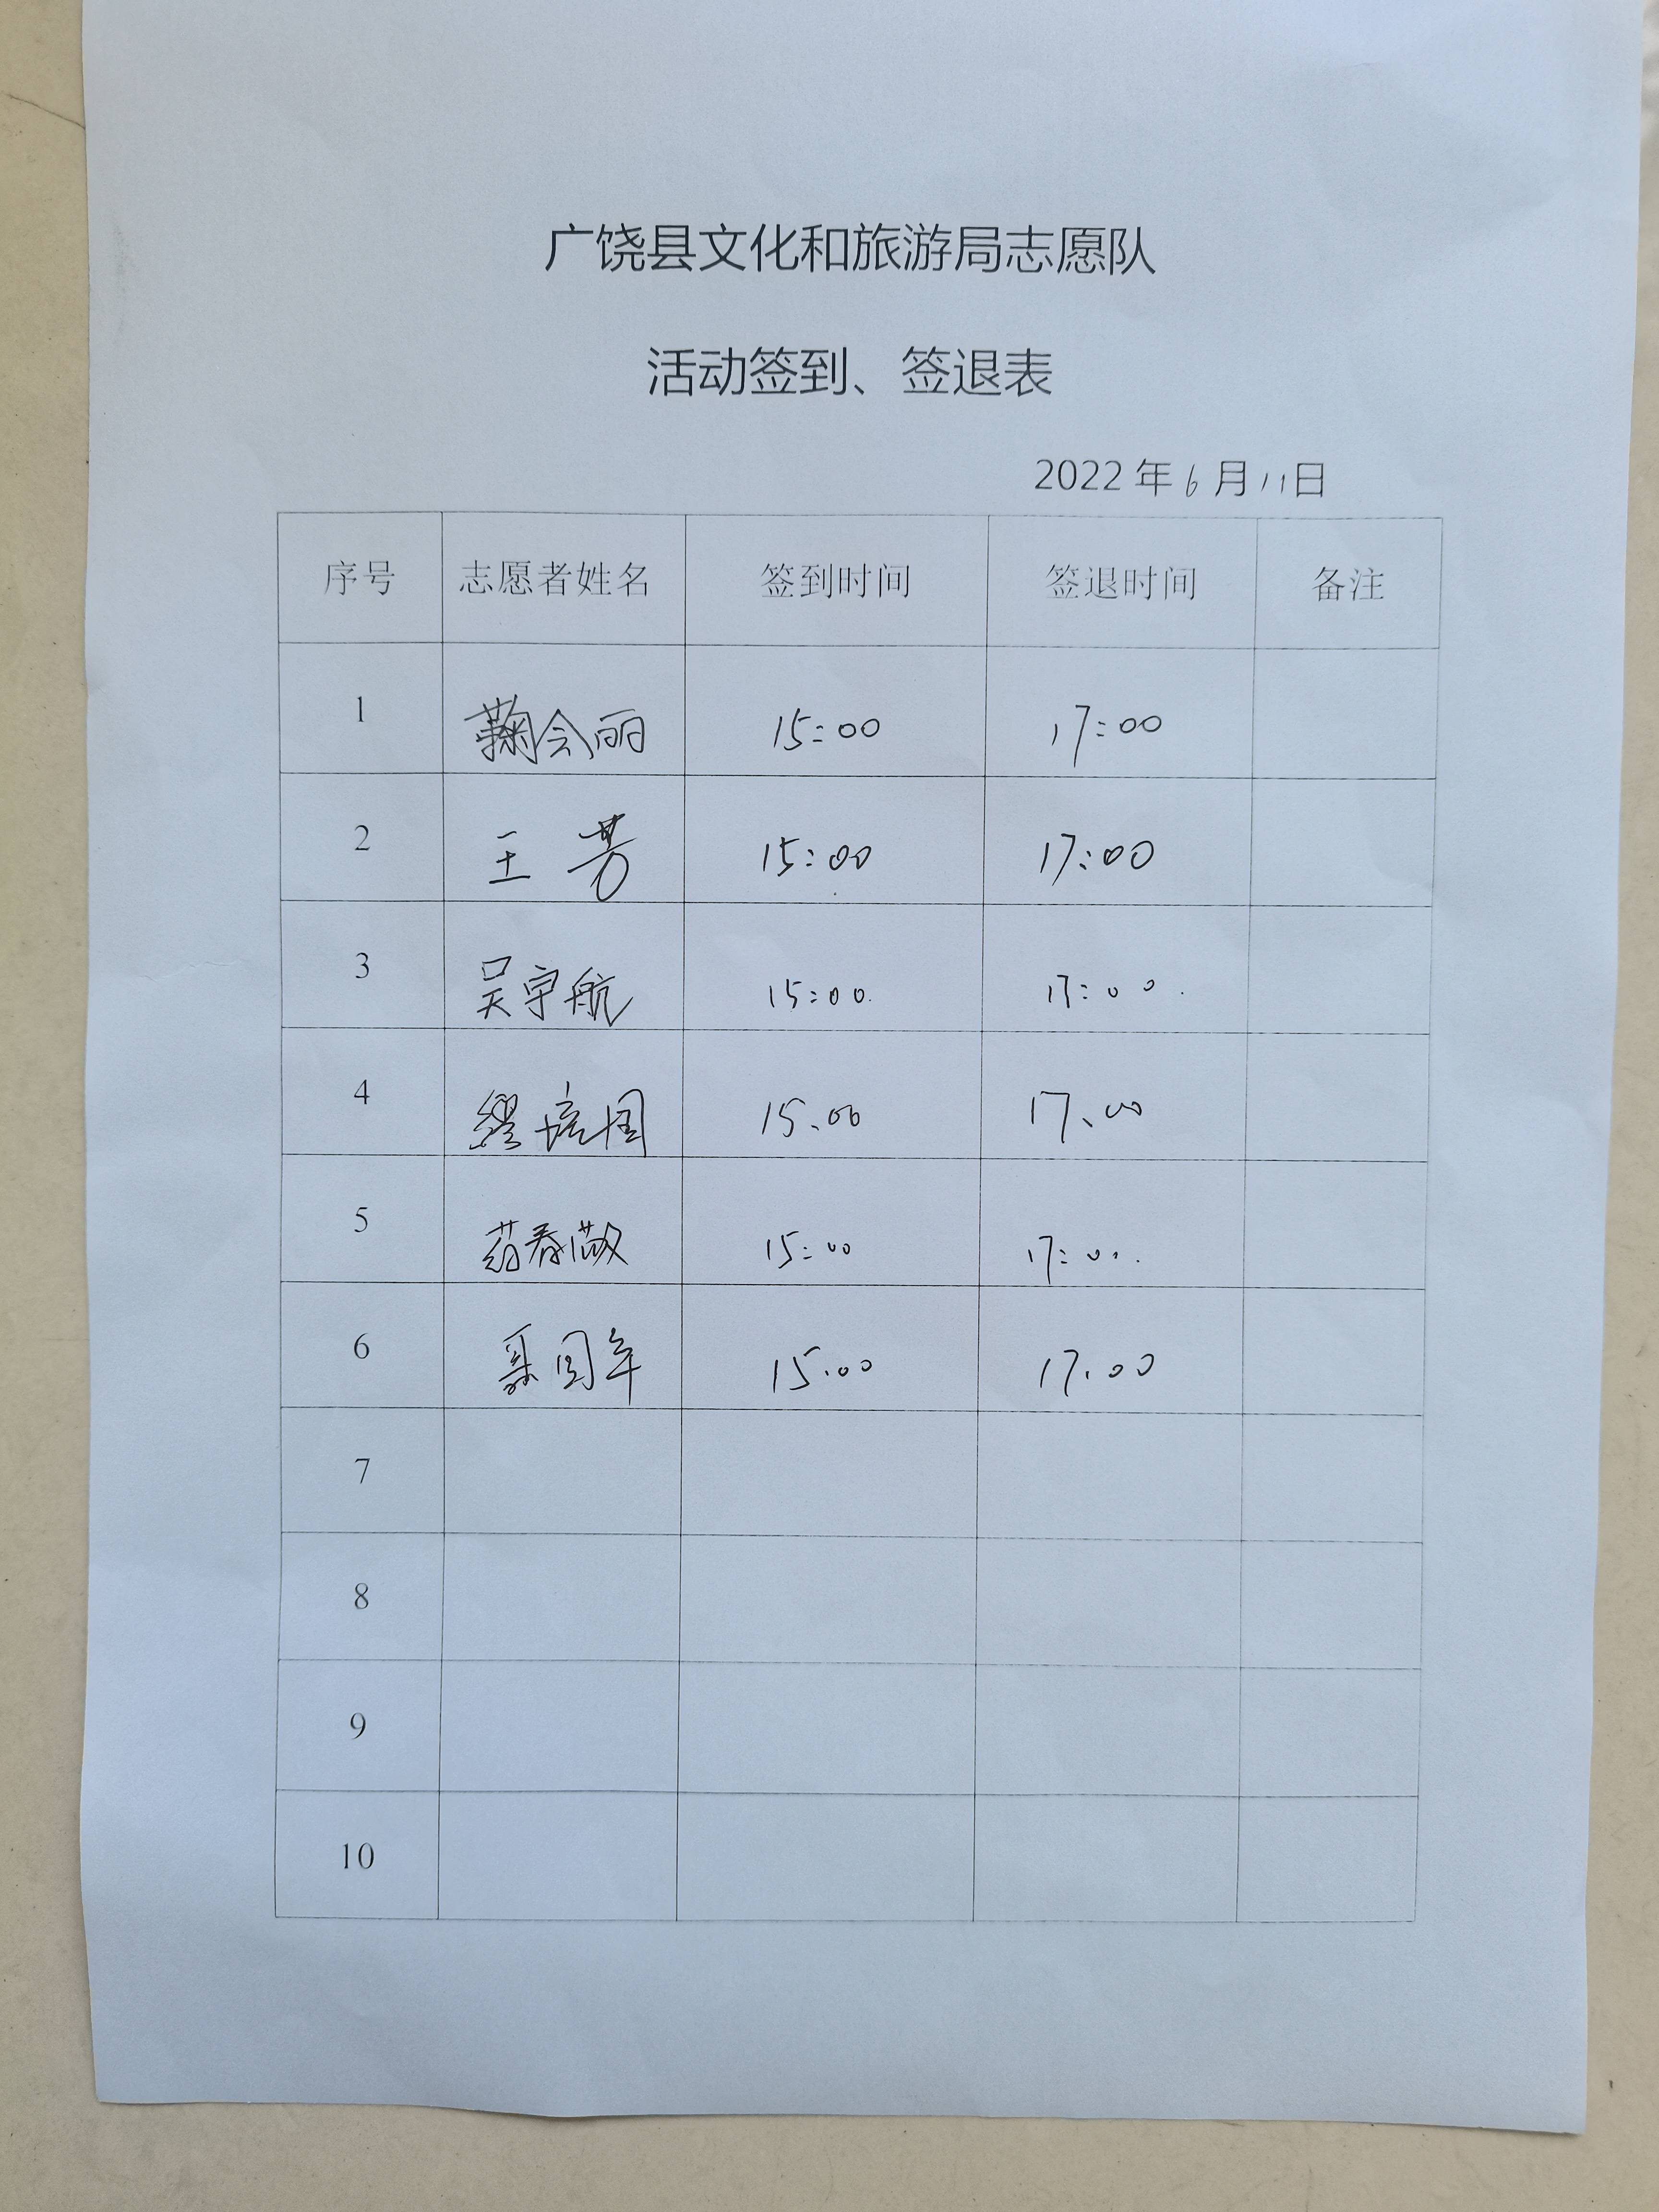 广饶县文化和旅游局志愿队
活动签到、签退表
2022年6月11日
序号 志愿者姓名 签到时间 签退时间 备注
1 鞠会丽 15:00 17:00
2 王芳 15:00 17:00
3 吴宇航 15:00. 17:00.
4 缪培国 15.00 17.00
5 春 15:00 17:00.
6 聂国军 15.00 17.00
7
8
9
10